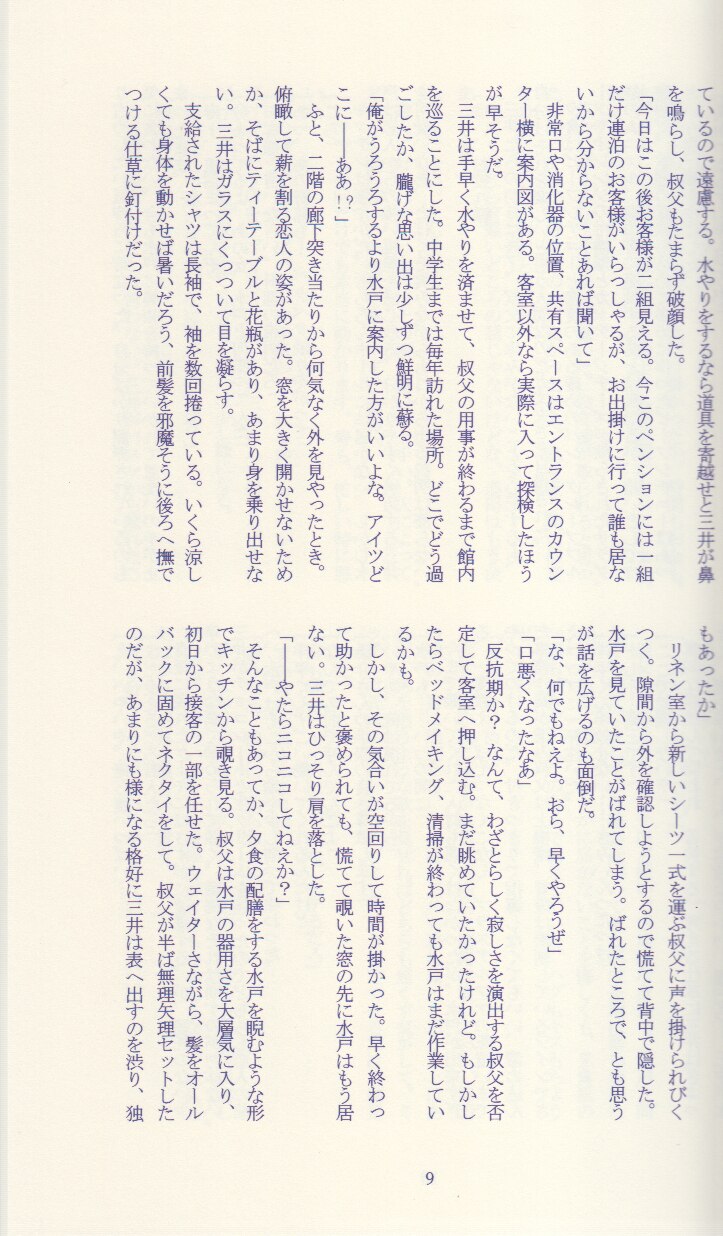 ているので遠慮する。水やりをするなら道具を寄越せと三井が鼻
を鳴らし、叔父もたまらず破顔した。
「今日はこの後お客様が二組見える。今このペンションには一組
だけ連泊のお客様がいらっしゃるが、お出掛けに行って誰も居な
いから分からないことあれば聞いて」
　非常口や消化器の位置、共有スペースはエントランスのカウン
ター横に案内図がある。客室以外なら実際に入って探検したほう
が早そうだ。
　三井は手早く水やりを済ませて、叔父の用事が終わるまで館内
を巡ることにした。中学生までは毎年訪れた場所。どこでどう過
ごしたか、朧げな思い出は少しずつ鮮明に蘇る。
「俺がうろうろするより水戸に案内した方がいいよな。アイツど
こに――ああ⁉」
　ふと、二階の廊下突き当たりから何気なく外を見やったとき。
俯瞰して薪を割る恋人の姿があった。窓を大きく開かせないため
か、そばにティーテーブルと花瓶があり、あまり身を乗り出せな
い。三井はガラスにくっついて目を凝らす。
　支給されたシャツは長袖で、袖を数回捲っている。いくら涼し
くても身体を動かせば暑いだろう、前髪を邪魔そうに後ろへ撫で
つける仕草に釘付けだった。
もあったか」
　リネン室から新しいシーツ一式を運ぶ叔父に声を掛けられびく
つく。隙間から外を確認しようとするので慌てて背中で隠した。
水戸を見ていたことがばれてしまう。ばれたところで、とも思う
が話を広げるのも面倒だ。
「な、何でもねえよ。おら、早くやろうぜ」
「口悪くなったなあ」
　反抗期か？　なんて、わざとらしく寂しさを演出する叔父を否
定して客室へ押し込む。まだ眺めていたかったけれど。もしかし
たらベッドメイキング、清掃が終わっても水戸はまだ作業してい
るかも。
　しかし、その気合いが空回りして時間が掛かった。早く終わっ
て助かったと褒められても、慌てて覗いた窓の先に水戸はもう居
ない。三井はひっそり肩を落とした。
「――やたらニコニコしてねえか？」
　そんなこともあってか、夕食の配膳をする水戸を睨むような形
でキッチンから覗き見る。叔父は水戸の器用さを大層気に入り、
初日から接客の一部を任せた。ウェイターさながら、髪をオール
バックに固めてネクタイをして。叔父が半ば無理矢理セットした
のだが、あまりにも様になる格好に三井は表へ出すのを渋り、独
9